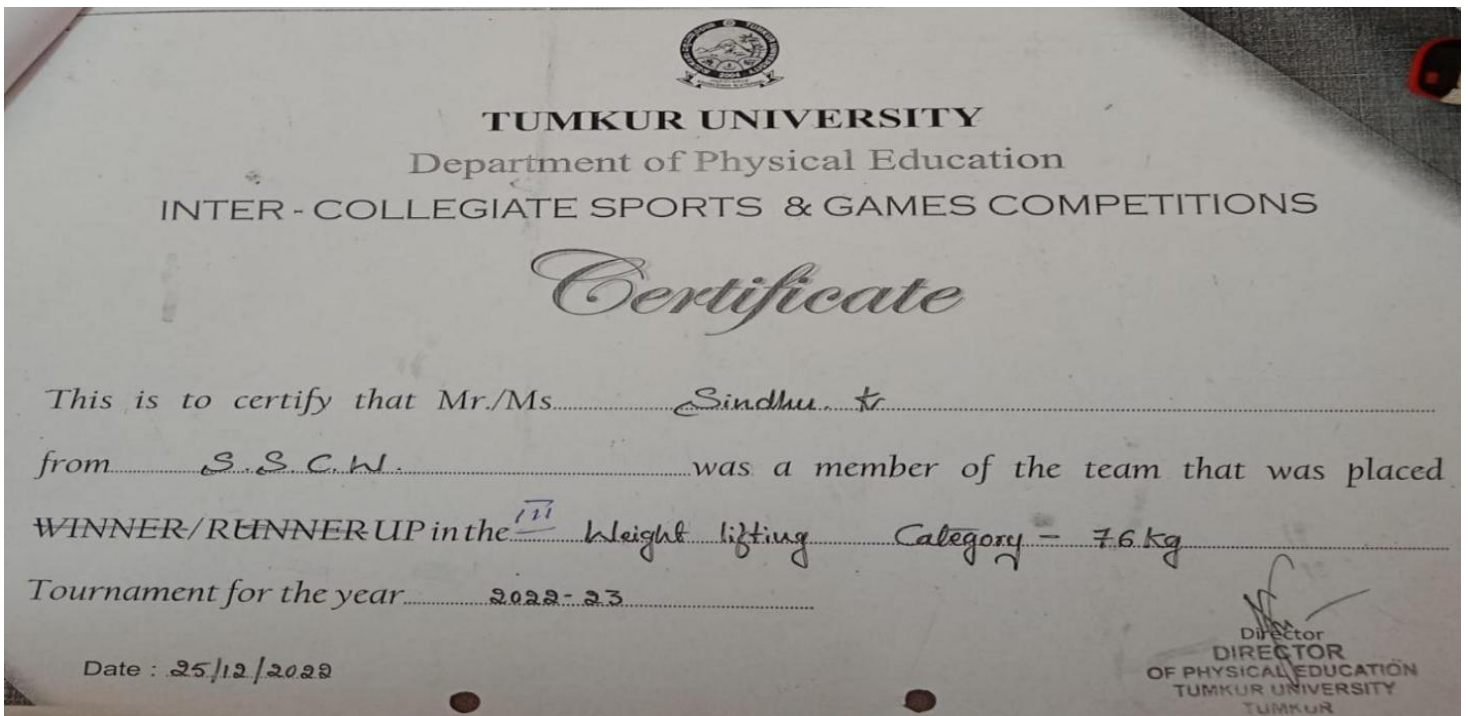 2004
TUMKUR UNIVERSITY
Department of Physical Education
INTER - COLLEGIATE SPORTS & GAMES COMPETITIONS
Certificate
This is to certify that Mr./Ms. Sindhu.
from S.S.C.W. was a member of the team that was placed
WINNER/RUNNER UP in the III Weight lifting Category - 76 kg
Tournament for the year 2022-23
Date : 25/12/2022
Director
DIRECTOR
OF PHYSICAL EDUCATION
TUMKUR UNIVERSITY
TUMKUR